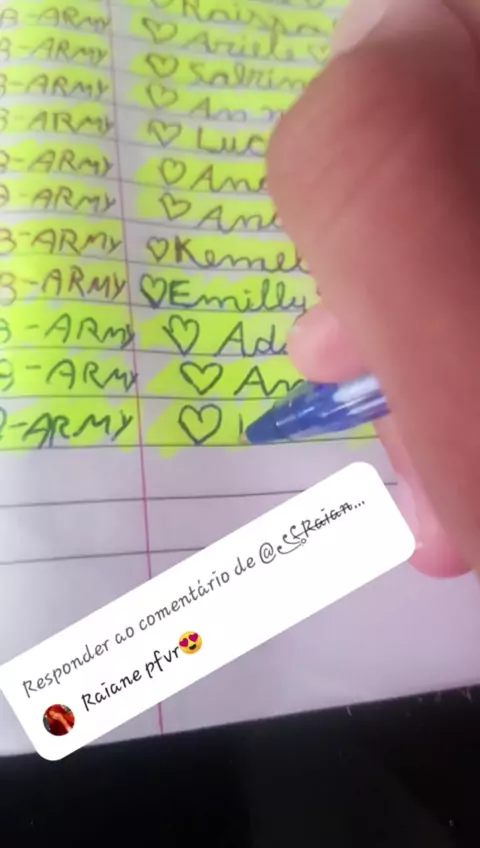 -ARMY ♡ Raissa
-ARMY ♡ Ariele ♡
B-ARMY ♡ Sabrin
B-ARMY ♡ An
B-ARMY ♡ Luc
B-ARMY ♡ An
B-ARMY ♡ An
B-ARMY ♡ Keme
B-ARMY ♡ Emilly
B-ARMY ♡ Ad
B-ARMY ♡ An
B-ARMY ♡
Responder ao comentário de @
Raiane pfvr😍